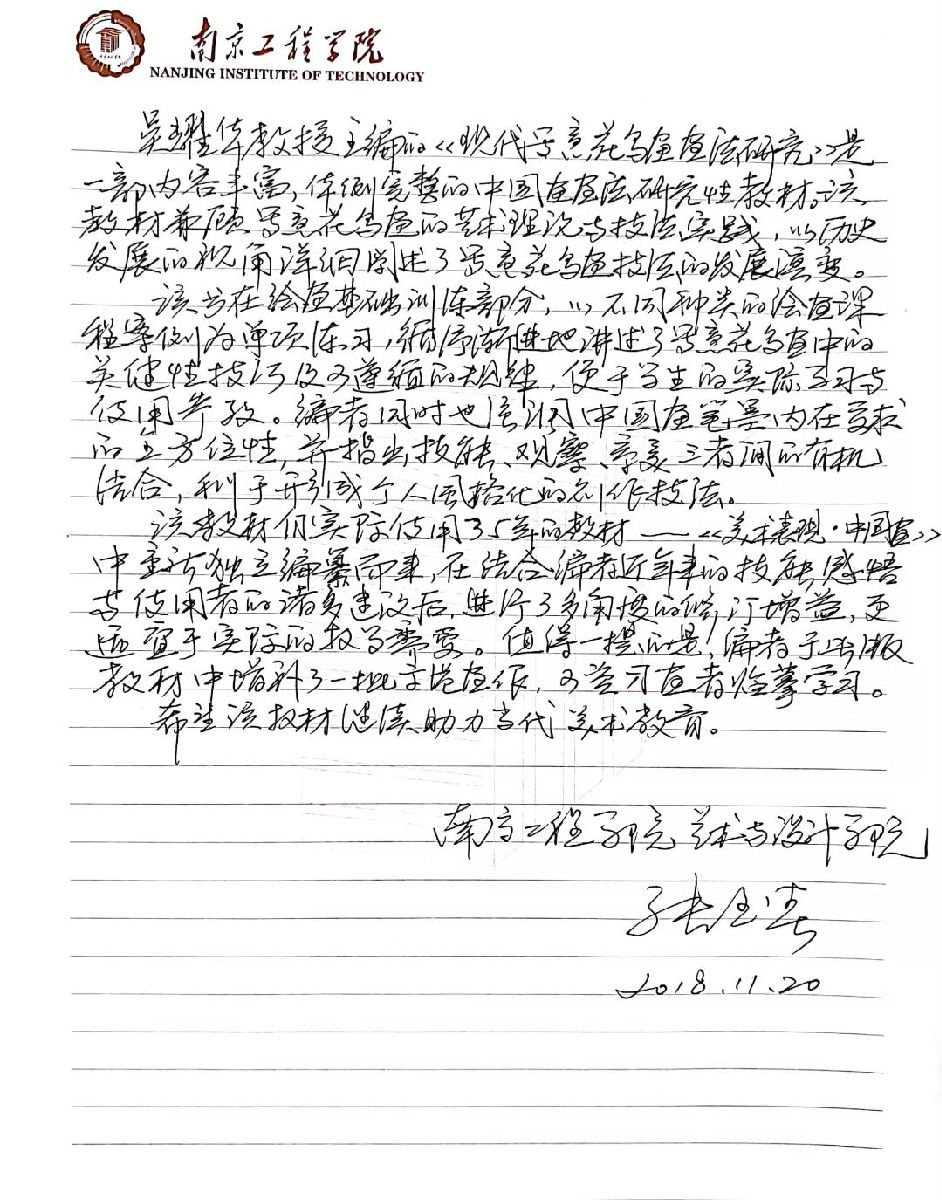 南京工程学院
NANJING INSTITUTE OF TECHNOLOGY
吴耀华教授主编的《现代写意花鸟画画法研究》是
一部内容丰富,体例完整的中国画画法研究性教材。该
教材兼顾写意花鸟画的艺术理论与技法实践,以历史
发展的视角详细阐述了写意花鸟画技法的发展演变。
该书在绘画基础训练部分,以不同种类的绘画课
程案例为单项练习,循序渐进地讲述了写意花鸟画中的
关键性技巧及可遵循的规律,便于学生的实际学习与
使用参考。编者同时也强调中国画笔墨内在要求
的全方位性,并指出技能、观摩、审美三者间的有机
结合,利于开引成个人风格化的创作技法。
该教材们实际使用了5年的教材——《美术表现·中国画》
中重新独立编纂而来,在结合编者近年来的技能感悟
与使用者的诸多建议后,进行了多角度的修订增益,更
适宜于实际的教学需要。值得一提的是!编者于此版
教材中增补了一批示范画作,可资习画者临摹学习。
希望该教材继续助力当代美术教育。
南京工程学院艺术与设计学院
张
2018.11.20